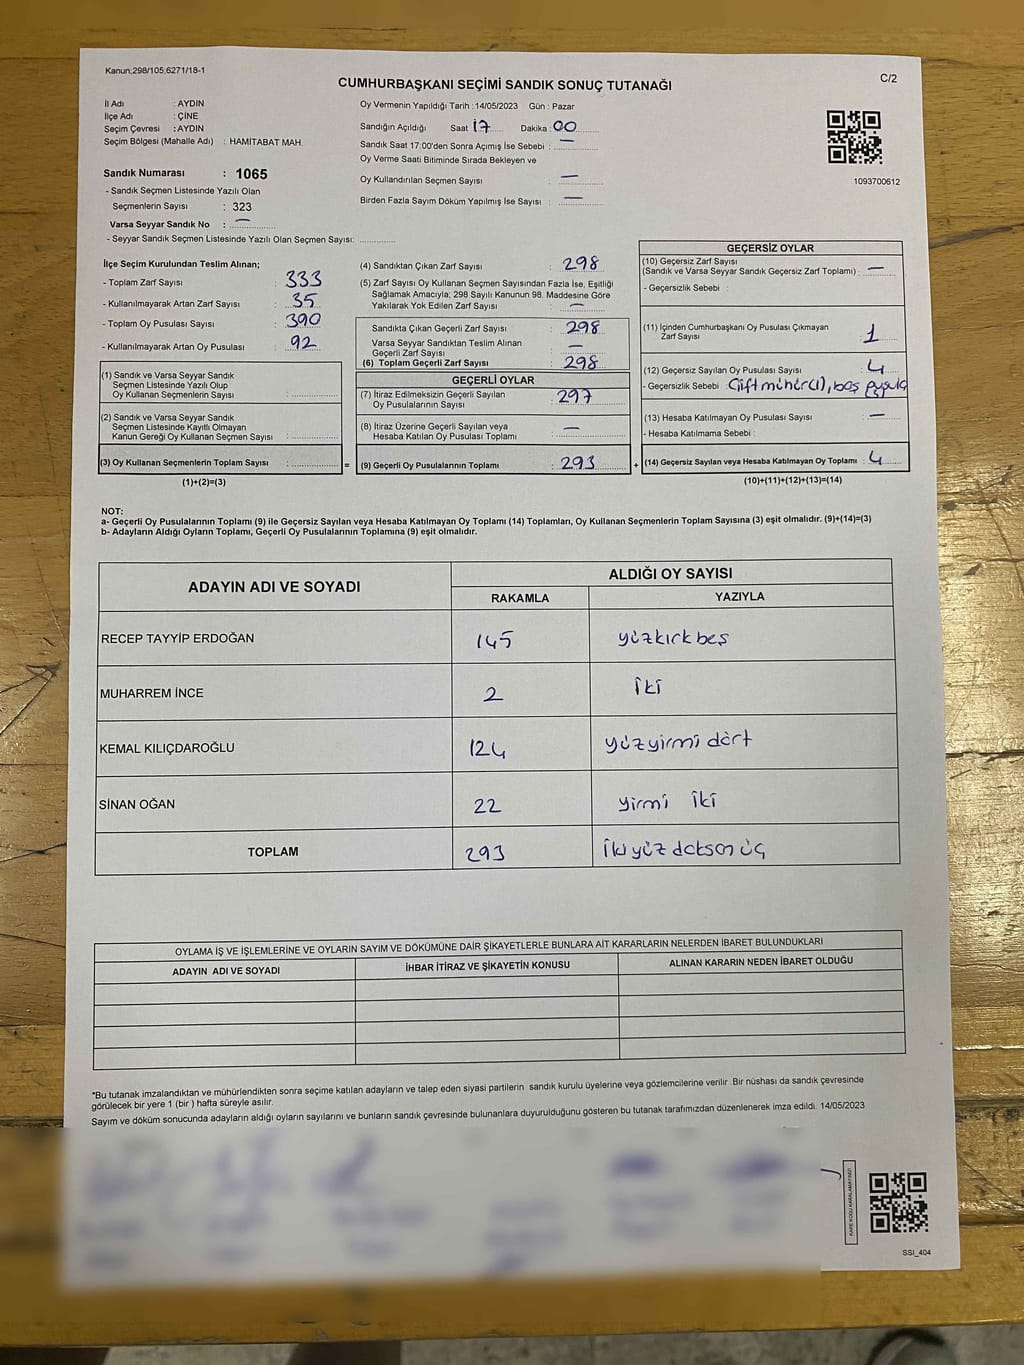 Kanun;298/105;6271/18-1
C/2
CUMHURBAŞKANI SEÇİMİ SANDIK SONUÇ TUTANAĞI
İl Adı : AYDIN
İlçe Adı : ÇİNE
Seçim Çevresi : AYDIN
Seçim Bölgesi (Mahalle Adı) : HAMİTABAT MAH.
Sandık Numarası : 1065
- Sandık Seçmen Listesinde Yazılı Olan
Seçmenlerin Sayısı : 323
Varsa Seyyar Sandık No : —
- Seyyar Sandık Seçmen Listesinde Yazılı Olan Seçmen Sayısı:
Oy Vermenin Yapıldığı Tarih : 14/05/2023 Gün : Pazar
Sandığın Açıldığı Saat 17 Dakika : 00
Sandık Saat 17:00'den Sonra Açımış İse Sebebi : —
Oy Verme Saati Bitiminde Sırada Bekleyen ve
Oy Kullandırılan Seçmen Sayısı : —
Birden Fazla Sayım Döküm Yapılmış İse Sayısı : —
1093700612
İlçe Seçim Kurulundan Teslim Alınan;
- Toplam Zarf Sayısı : 333
- Kullanılmayarak Artan Zarf Sayısı : 35
- Toplam Oy Pusulası Sayısı : 390
- Kullanılmayarak Artan Oy Pusulası : 92
(1) Sandık ve Varsa Seyyar Sandık
Seçmen Listesinde Yazılı Olup
Oy Kullanan Seçmenlerin Sayısı :
(2) Sandık ve Varsa Seyyar Sandık
Seçmen Listesinde Kayıtlı Olmayan
Kanun Gereği Oy Kullanan Seçmen Sayısı :
(3) Oy Kullanan Seçmenlerin Toplam Sayısı : =
(1)+(2)=(3)
(4) Sandıktan Çıkan Zarf Sayısı : 298
(5) Zarf Sayısı Oy Kullanan Seçmen Sayısından Fazla İse, Eşitliği
Sağlamak Amacıyla; 298 Sayılı Kanunun 98. Maddesine Göre
Yakılarak Yok Edilen Zarf Sayısı : —
Sandıkta Çıkan Geçerli Zarf Sayısı : 298
Varsa Seyyar Sandıktan Teslim Alınan
Geçerli Zarf Sayısı : —
(6) Toplam Geçerli Zarf Sayısı : 298
GEÇERLİ OYLAR
(7) İtiraz Edilmeksizin Geçerli Sayılan
Oy Pusulalarının Sayısı : 297
(8) İtiraz Üzerine Geçerli Sayılan veya
Hesaba Katılan Oy Pusulası Toplamı : —
(9) Geçerli Oy Pusulalarının Toplamı : 293 +
GEÇERSİZ OYLAR
(10) Geçersiz Zarf Sayısı
(Sandık ve Varsa Seyyar Sandık Geçersiz Zarf Toplamı) : —
- Geçersizlik Sebebi :
(11) İçinden Cumhurbaşkanı Oy Pusulası Çıkmayan
Zarf Sayısı : 1
(12) Geçersiz Sayılan Oy Pusulası Sayısı : 4
- Geçersizlik Sebebi : Çift mühür(1), boş pusula
(13) Hesaba Katılmayan Oy Pusulası Sayısı : —
- Hesaba Katılmama Sebebi :
(14) Geçersiz Sayılan veya Hesaba Katılmayan Oy Toplamı : 4
(10)+(11)+(12)+(13)=(14)
NOT:
a- Geçerli Oy Pusulalarının Toplamı (9) ile Geçersiz Sayılan veya Hesaba Katılmayan Oy Toplamı (14) Toplamları, Oy Kullanan Seçmenlerin Toplam Sayısına (3) eşit olmalıdır. (9)+(14)=(3)
b- Adayların Aldığı Oyların Toplamı, Geçerli Oy Pusulalarının Toplamına (9) eşit olmalıdır.
ADAYIN ADI VE SOYADI
ALDIĞI OY SAYISI
RAKAMLA YAZIYLA
RECEP TAYYİP ERDOĞAN 145 yüzkırkbeş
MUHARREM İNCE 2 iki
KEMAL KILIÇDAROĞLU 124 yüzyirmi dört
SİNAN OĞAN 22 yirmi iki
TOPLAM 293 İkiyüz doksan üç
OYLAMA İŞ VE İŞLEMLERİNE VE OYLARIN SAYIM VE DÖKÜMÜNE DAİR ŞİKAYETLERLE BUNLARA AİT KARARLARIN NELERDEN İBARET BULUNDUKLARI
ADAYIN ADI VE SOYADI İHBAR İTİRAZ VE ŞİKAYETİN KONUSU ALINAN KARARIN NEDEN İBARET OLDUĞU
*Bu tutanak imzalandıktan ve mühürlendikten sonra seçime katılan adayların ve talep eden siyasi partilerin sandık kurulu üyelerine veya gözlemcilerine verilir .Bir nüshası da sandık çevresinde
görülecek bir yere 1 (bir ) hafta süreyle asılır.
Sayım ve döküm sonucunda adayların aldığı oyların sayılarını ve bunların sandık çevresinde bulunanlara duyurulduğunu gösteren bu tutanak tarafımızdan düzenlenerek imza edildi. 14/05/2023
KARE KODU KARALAMAYINIZ!
SSİ_404